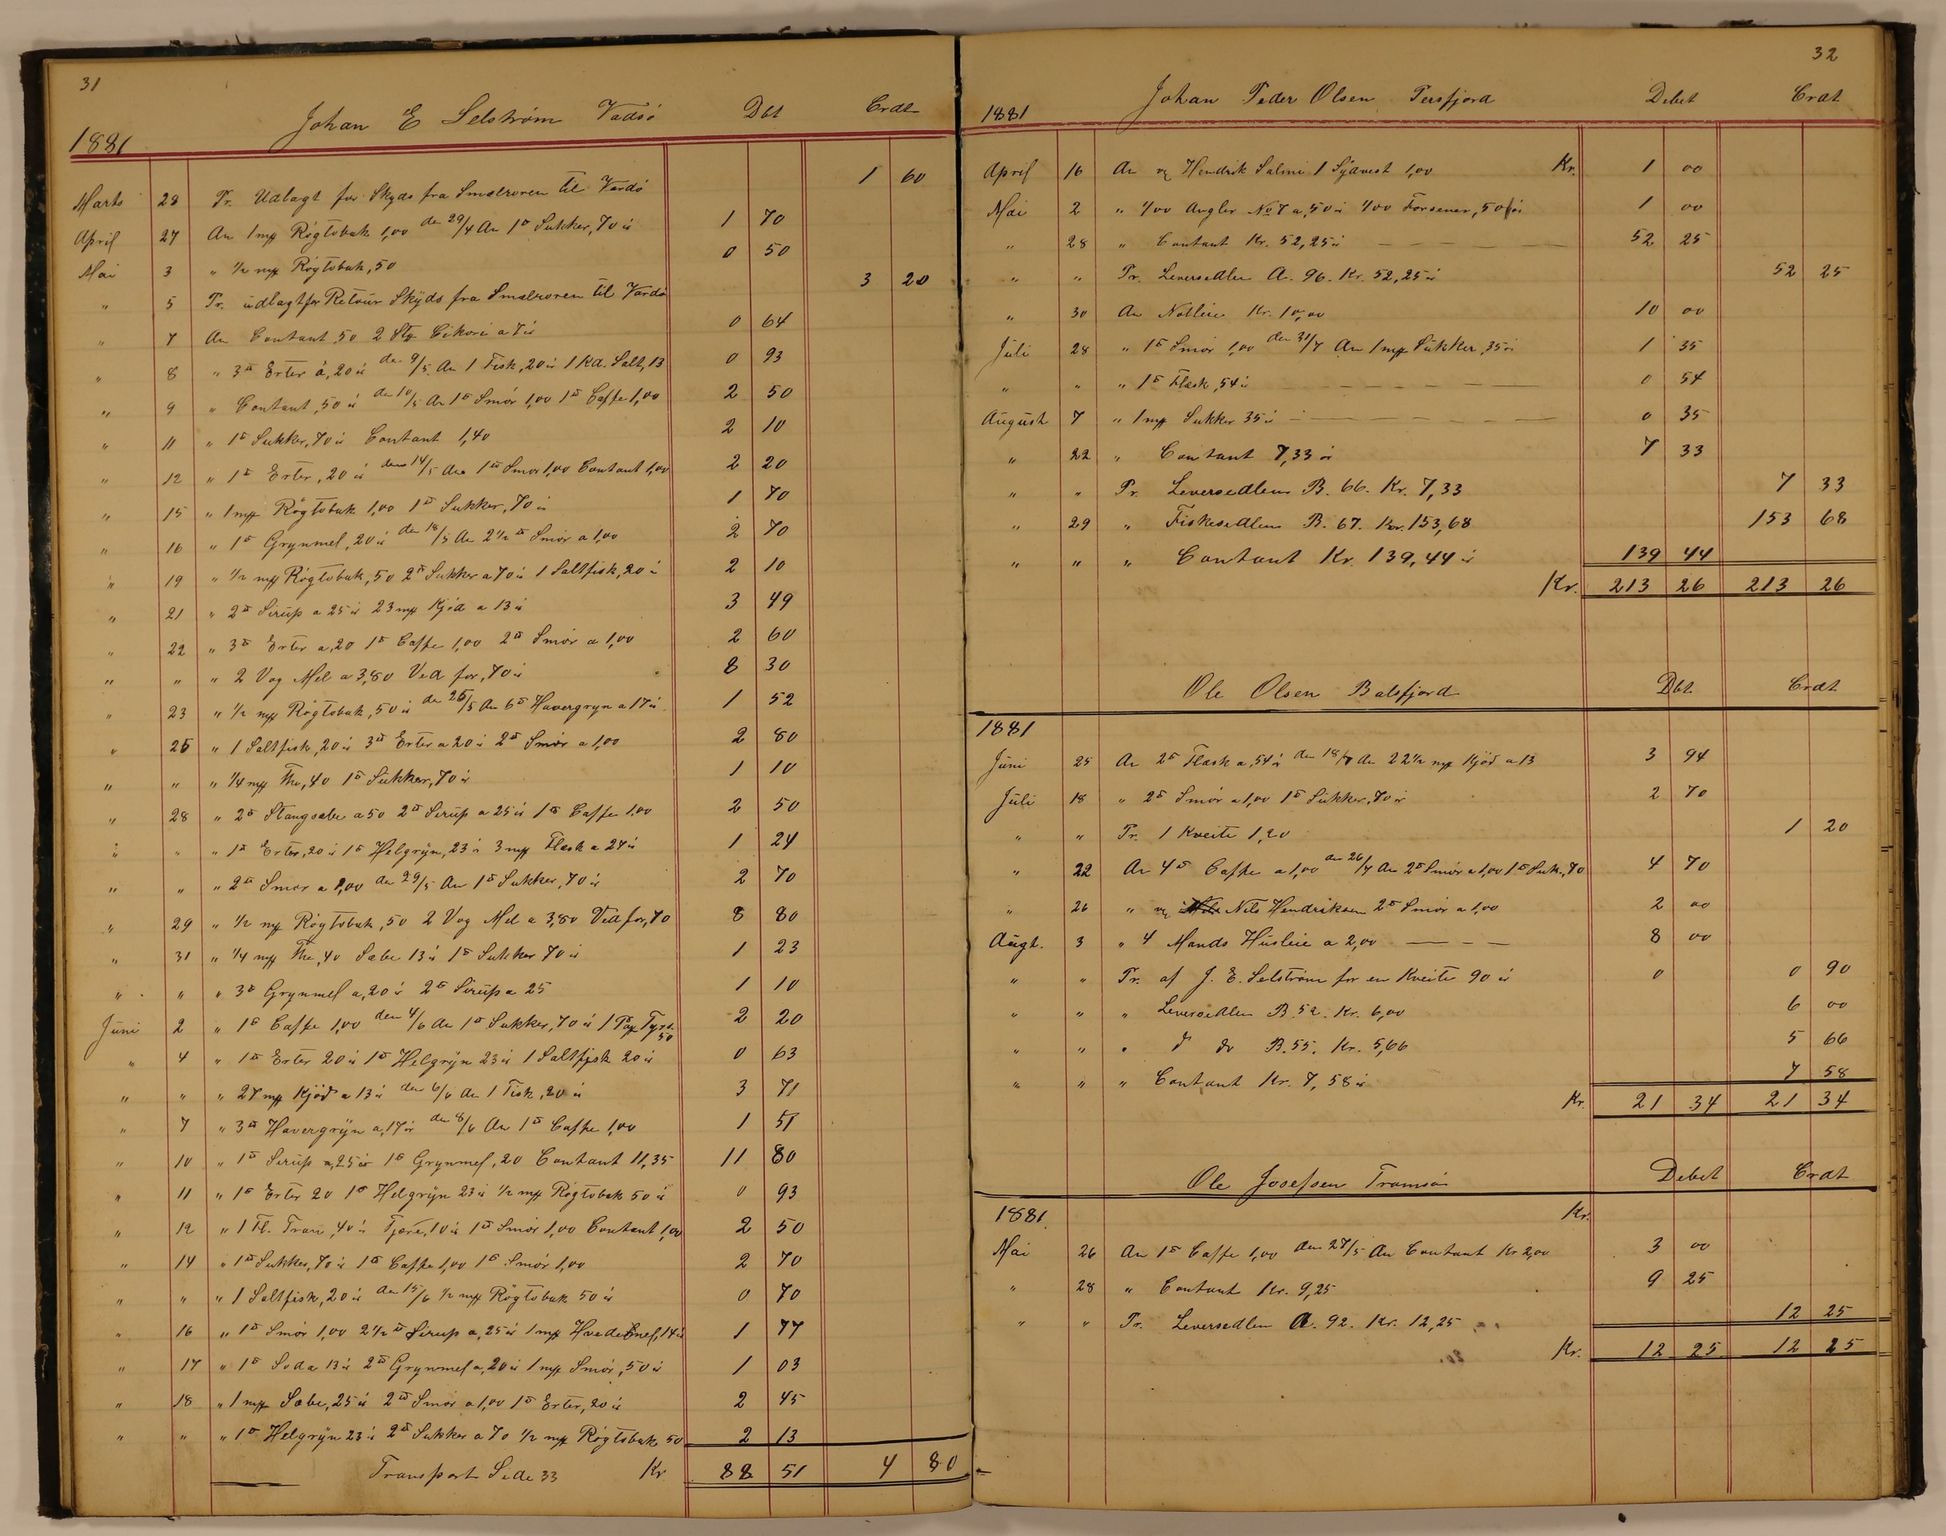 31
1881 Johan E Selstrøm Vadsø Dbt Crdt
Marts 28 Pr. Udlagt for Skyds fra Smalroren til Vardø 1 60
April 27 An 1 mp Røgtobak 1,00 den 29/4 An 1 ℔ Sukker, 70 ör 1 70
Mai 3 " 1/2 mp Røgtobak, 50 0 50
" 5 Pr. udlagt for Retour Skyds fra Smalroren til Vardø 3 20
" 7 An Contant 50 2 Stg Cikorie a 7 ör 0 64
" 8 " 3 ℔ Erter á, 20 ör den 9/5. An 1 Fisk, 20 ör 1 Kd. Salt, 13 0 93
" 9 " Contant, 50 ör den 10/5 An 1 ℔ Smör 1,00 1 ℔ Caffe 1,00 2 50
" 11 " 1 ℔ Sukker, 70 ör Contant 1,40 2 10
" 12 " 1 ℔ Erter, 20 ör den 14/5 An 1 ℔ Smör 1,00 Contant 1,00 2 20
" 15 " 1 mp Røgtobak 1,00 1 ℔ Sukker, 70 ör 1 70
" 16 " 1 ℔ Grynmel, 20 ör den 18/5 An 2 1/2 ℔ Smör a 1,00 2 70
" 19 " 1/2 mp Røgtobak, 50 2 ℔ Sukker a 70 ör 1 Saltfisk, 20 ör 2 10
" 21 " 2 ℔ Sirup a 25 ör 23 mp Kjød a 13 ör 3 49
" 22 " 3 ℔ Erter a, 20 1 ℔ Caffe 1,00 2 ℔ Smör a 1,00 2 60
" " " 2 Vog Mel a 3,80 Ved for, 70 ör 8 30
" 23 " 1/2 mp Røgtobak, 50 ör den 25/5 An 6 ℔ Havergryn a 17 ör 1 52
" 25 " 1 Saltfisk, 20 ör 3 ℔ Erter a 20 ör 2 ℔ Smör a 1,00 2 80
" " " 1/4 mp The, 40 1 ℔ Sukker, 70 ör 1 10
" 28 " 2 ℔ Stangsæbe a 50 2 ℔ Sirup a 25 ör 1 ℔ Caffe 1,00 2 50
" " " 1 ℔ Erter, 20 ör 1 ℔ Helgryn, 23 ör 3 mp Flesk a 27 ör 1 24
" " " 2 ℔ Smør a 1,00 den 29/5 An 1 ℔ Sukker, 70 ör 2 70
" 29 " 1/2 mp Røgtobak, 50 2 Vog Mel a 3,80 Ved for, 70 8 80
" 31 " 1/4 mp The, 40 Sæbe 13 ör 1 ℔ Sukker 70 ör 1 23
" " " 3 ℔ Grynmel a, 20 ör 2 ℔ Sirup a 25 1 10
Juni 2 " 1 ℔ Caffe 1,00 den 4/6 An 1 ℔ Sukker, 70 ör 1 Pap Fyrst. 50 2 20
" 4 " 1 ℔ Erter 20 ör 1 ℔ Helgryn 23 ör 1 Saltfisk 20 ör 0 63
" " " 27 mp Kjød a 13 ör den 6/6 An 1 Fisk, 20 ör 3 71
" 7 " 3 ℔ Havergryn a, 17 ör den 8/6 An 1 ℔ Caffe 1,00 1 51
" 10 " 1 ℔ Sirup a, 25 ör 1 ℔ Grynmel, 20 Contant 11,35 11 80
" 11 " 1 ℔ Erter 20 1 ℔ Helgryn 23 ör 1/2 mp Røgtobak 50 ör 0 93
" 12 " 1 Fl. Tran, 40 ör Tjære, 10 ör 1 ℔ Smör 1,00 Contant 1,00 2 50
" 14 " 1 ℔ Sukker, 70 ör 1 ℔ Caffe 1,00 1 ℔ Smör 1,00 2 70
" " " 1 Saltfisk, 20 ör den 15/6 1/2 mp Røgtobak 50 ör 0 70
" 16 " 1 ℔ Smör 1,00 2 1/2 ℔ Sirup a, 25 ör 1 mp Hvedemel, 14 ör 1 77
" 17 " 1 ℔ Soda 13 ör 2 ℔ Grynmel a, 20 ör 1 mp Smör, 50 ör 1 03
" 18 " 1 mp Sæbe, 25 ör 2 ℔ Smör a 1,00 1 ℔ Erter, 20 ör 2 45
" " " 1 ℔ Helgryn 23 ör 2 ℔ Sukker a 70 1/2 mp Røgtobak 50 2 13
Transport Side 33 Kr. 88 51 4 80
32
1881 Johan Peder Olsen Persfjord Debet Crdt
April 16 An vg Hendrik Salmi 1 Sydvest 1,00 Kr. 1 00
Mai 2 " 400 Angler No 7 a, 50 ör 400 Forsener, 50 ör 1 00
" 28 " Contant Kr. 52,25 ör 52 25
" " Pr. Leversedlen A. 96. Kr. 52,25 ör 52 25
" 30 An Notleie Kr. 10,00 10 00
Juli 28 " 1 ℔ Smör 1,00 den 31/7 An 1 mp Sukker, 35 ör 1 35
" " " 1 ℔ Flesk, 54 ör 0 54
August 7 " 1 mp Sukker 35 ör 0 35
" 22 " Contant 7,33 ör 7 33
" " Pr. Leversedlen B. 66. Kr. 7,33 7 33
" 29 " Fiskesedlen B. 67. Kr. 153,68 153 68
" " " Contant Kr. 139,44 ör 139 44
Kr. 213 26 213 26
Ole Olsen Balsfjord Dbt. Crdt
1881
Juni 25 An 2 ℔ Flæsk a, 54 ör den 18/7 An 22 1/2 mp Kjød a 13 3 94
Juli 18 " 2 ℔ Smör a 1,00 1 ℔ Sukker, 70 ör 2 70
" " Pr. 1 Kveite 1,20 1 20
" 22 An 4 ℔ Caffe a 1,00 den 26/7 An 2 ℔ Smör a 1,00 1 ℔ Suk., 70 4 70
" 26 " vg Nils Hendriksen 2 ℔ Smör a 1,00 2 00
Augt. 3 " 4 Mands Husleie a 2,00 8 00
" " Pr. af J. E. Selstrøm for en Kveite 90 ör 0 0 90
" " " Leversedlen B. 52. Kr. 6,00 6 00
" " " do do B. 55. Kr. 5,66 5 66
" " " Contant Kr. 7,58 ör 7 58
Kr. 21 34 21 34
Ole Josefsen Tromsøe Debet Crdt
1881. Kr.
Mai 26 An 1 ℔ Caffe 1,00 den 27/5 An Contant Kr 2,00 3 00
" 28 " Contant Kr. 9,25 9 25
" " Pr. Leversedlen A. 92. Kr. 12,25 12 25
Kr. 12 25 12 25